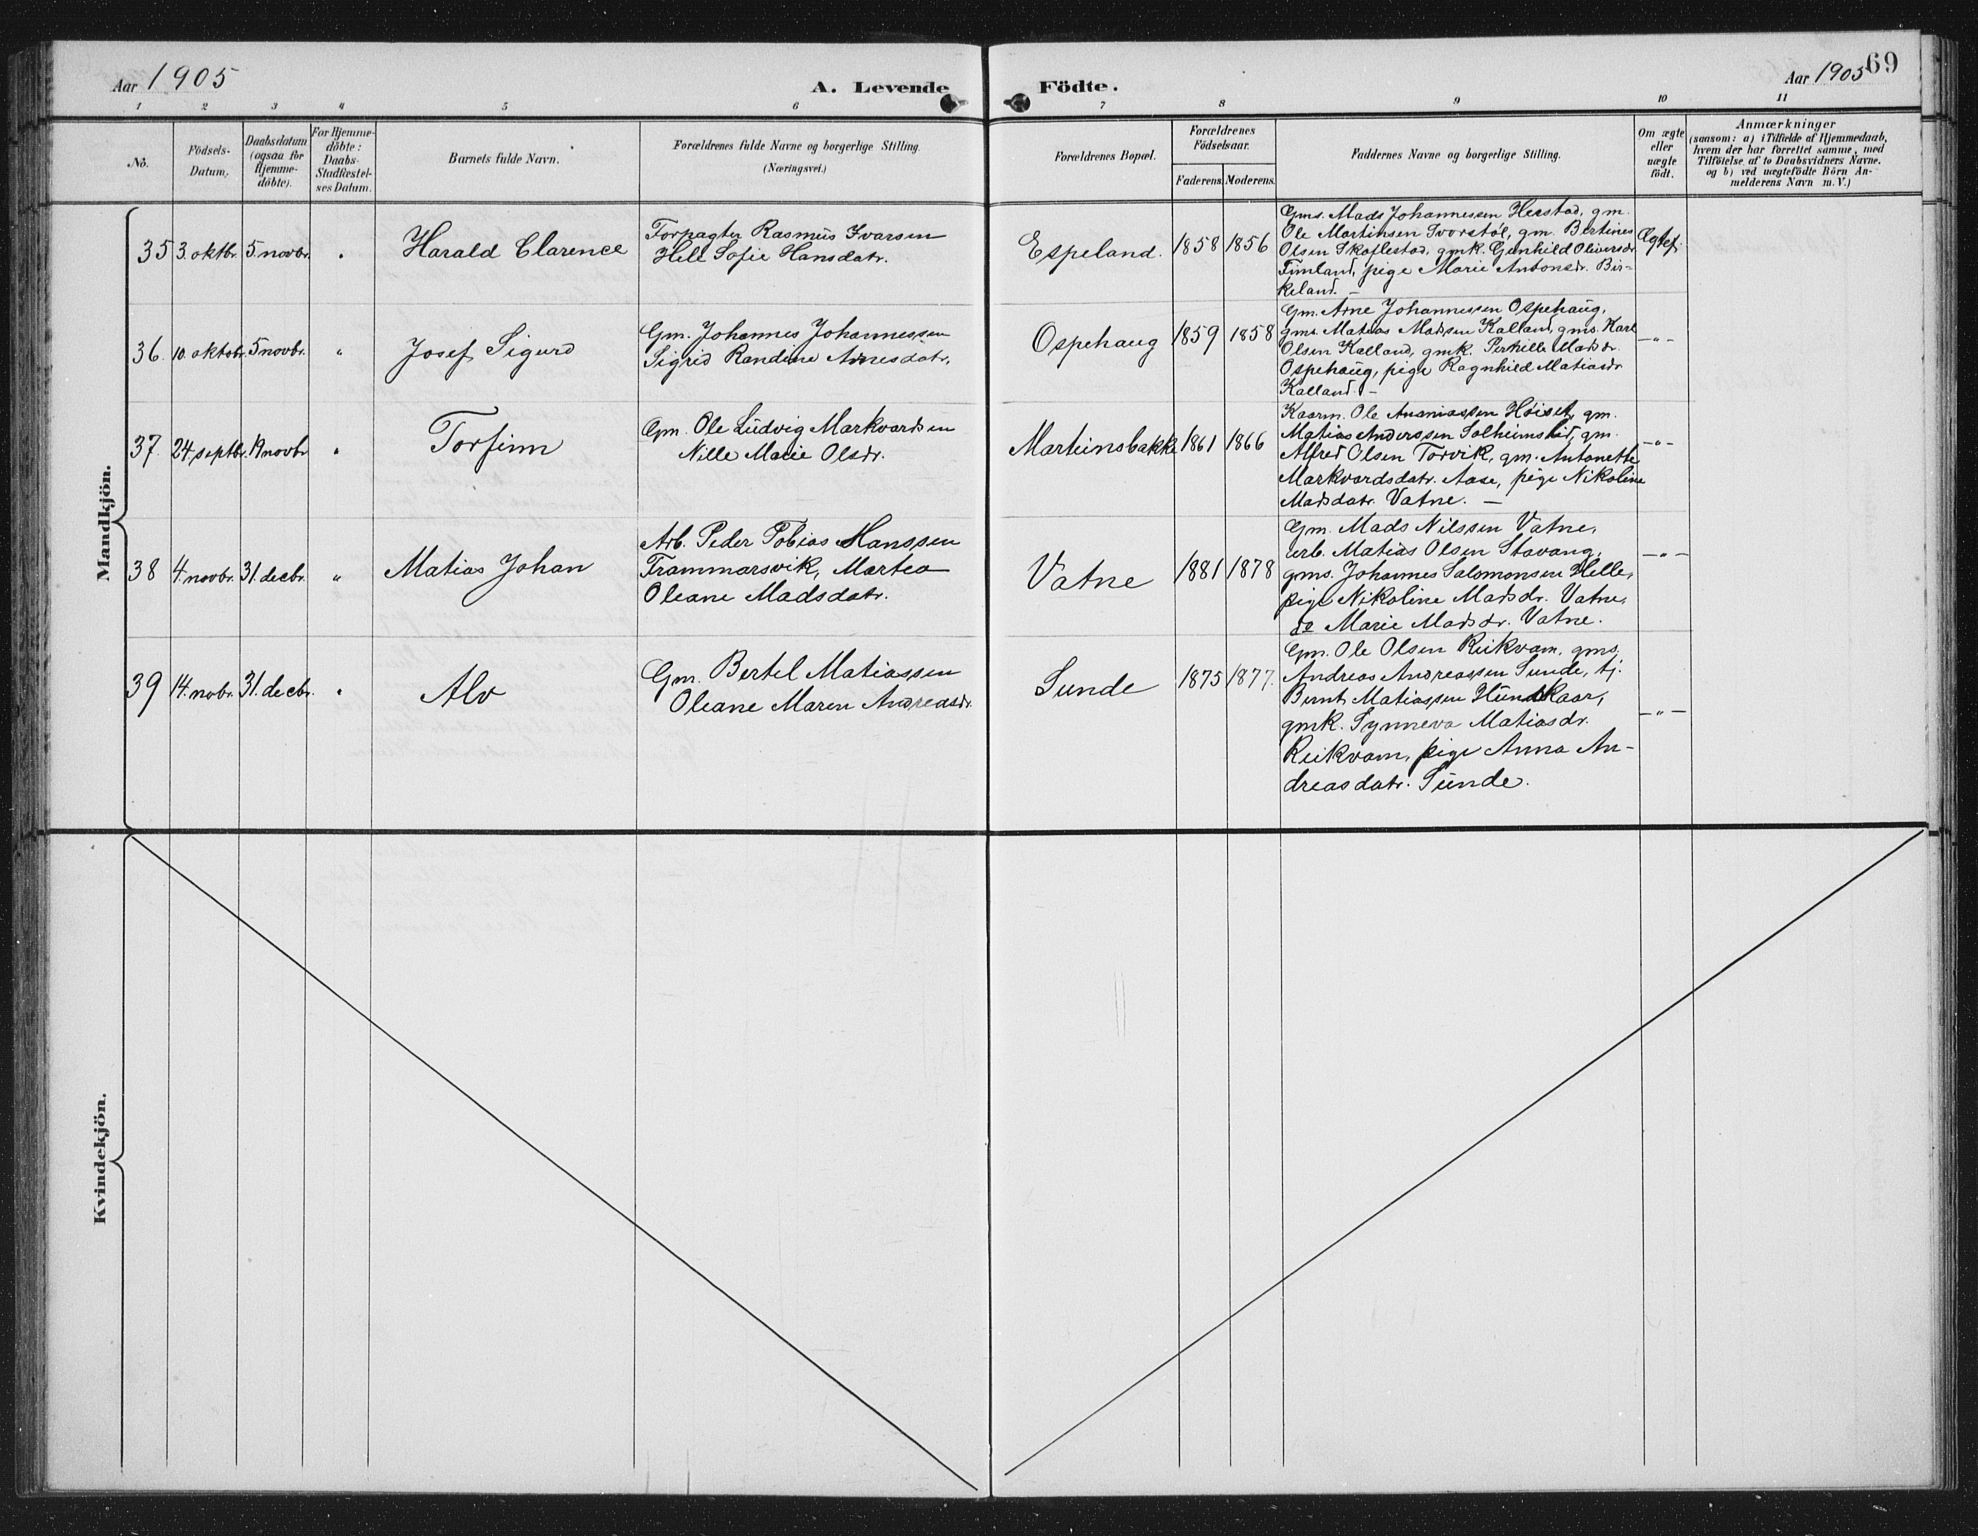 Aar 1905
A. Levende
Födte.
Aar 1905
69
1 2 3 4 5 6 7 8 9 10 11
No.
Födsels-
Datum.
Daabsdatum
(ogsaa for
Hjemme-
döbte).
For Hjemme-
döbte:
Daabs-
Stadfæstel-
ses Datum.
Barnets fulde Navn.
Forældrenes fulde Navne og borgerlige Stilling.
(Næringsvei.)
Forældrenes Bopæl.
Forældrenes
Födselsaar.
Faderens. Moderens.
Faddernes Navne og borgerlige Stilling.
Om ægte
eller
uægte
født.
Anmærkninger
(saasom: a) i Tilfælde af Hjemmedaab,
hvem der har forrettet samme, med
Tilföielse af to Daabsvidners Navne,
og b) ved uægtefödte Börn An-
melderens Navn m. V.)
Mandkjön.
35 3. oktbr. 5. novbr. " Harald Clarence
Forpagter Rasmus Ivarsen
Hele Sofie Hansdatr.
Espeland. 1858 1856
Gms. Mads Johannessen Herstad, gm.
Ole Martinsen Svorstøl, gm. Bertines
Olsen Skaflestad, gmk. Gunhild Oliversdr.
Timland, pige Marie Antonsdr. Bir-
keland. –
Ægtef.
36. 10. oktobr. 5 novbr. " Josef Sigurd
Gm. Johannes Johannessen
Sigrid Randine Arnesdatr.
Ospehaug 1859 1858
Gm. Arne Johannessen Ospehaug,
gms. Matias Madsen Kalland, gms. Karl
Olsen Kalland, gmk. Perkille Madsdr.
Ospehaug, pige Ragnhild Matiasdr.
Kalland. –
–"–
37. 24 septbr. 19 novbr. " Torfinn
Gm. Ole Ludvig Markvardsen
Nille Marie Olsdr.
Marteinsbakke 1861 1866
Kaarm. Ole Ananiassen Høiset, gm.
Matias Anderssen Solheimslid, gm.
Alfred Olsen Torvik, gm. Antonette
Markvardsdatr. Aase, pige Nikoline
Madsdatr. Vatne. –
–"–
38 4. novbr. 31 decbr. " Matias Johan
Arb. Peder Tobias Hanssen
Frammarsvik, Martea
Oleane Madsdatr.
Vatne 1881 1878
Gm. Mads Nilssen Vatne,
arb. Matias Olsen Stavang,
gms. Johannes Salomonsen Helle,
pige Nikoline Madsdr. Vatne,
do Marie Madsdr. Vatne.
–"–
39 14. nobr. 31. decbr. " Alv
Gm. Bertel Matiassen
Oleane Maren Andreasdr.
Sunde 1875 1877.
Gm. Ole Olsen Reikvam, gms.
Andreas Andreassen Sunde, tj.
Bernt Matiassen Hundskaar,
gmk. Synneva Matiasdr.
Reikvam, pige Anna An-
dreasdatr. Sunde.
–"–
Kvindekjön.